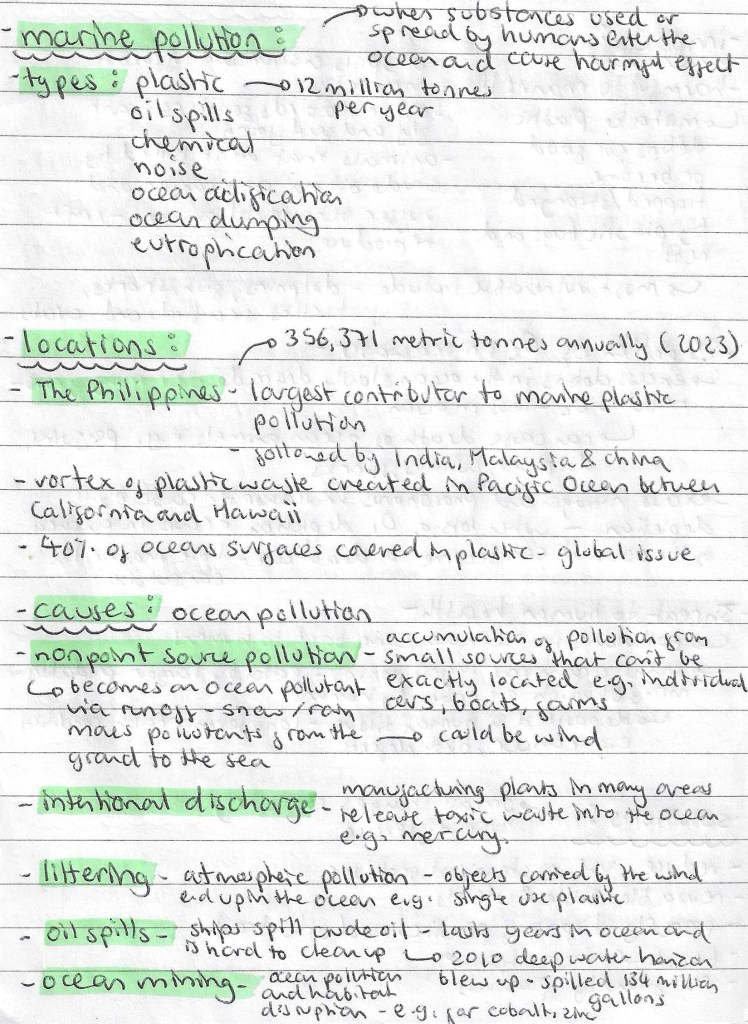 when substances used or
- marine pollution : spread by humans enter the
ocean and cause harmful effect
- types : plastic → 12 million tonnes
per year
oil spills
chemical
noise
ocean acidification
ocean dumping
eutrophication
- locations : → 356,371 metric tonnes annually (2023)
- The Philippines - largest contributor to marine plastic
pollution
- followed by India, Malaysia & China
- vortex of plastic waste created in Pacific Ocean between
California and Hawaii
- 40% of oceans surfaces covered in plastic - global issue
- causes : ocean pollution
- nonpoint source pollution - accumulation of pollution from
small sources that can't be
exactly located e.g. individual
cars, boats, farms
↳ becomes an ocean pollutant
via runoff - snow / rain
moves pollutants from the → could be wind
ground to the sea
- intentional discharge - manufacturing plants in many areas
release toxic waste into the ocean
e.g. mercury.
- littering - atmospheric pollution - objects carried by the wind
end up in the ocean e.g. single use plastic
- oil spills - ships spill crude oil - lasts years in ocean and
is hard to clean up ↳ 2010 deep water horizon
blew up - spilled 134 million
gallons
- ocean mining - ocean pollution
and habitat
disruption - e.g. for cobalt, zinc